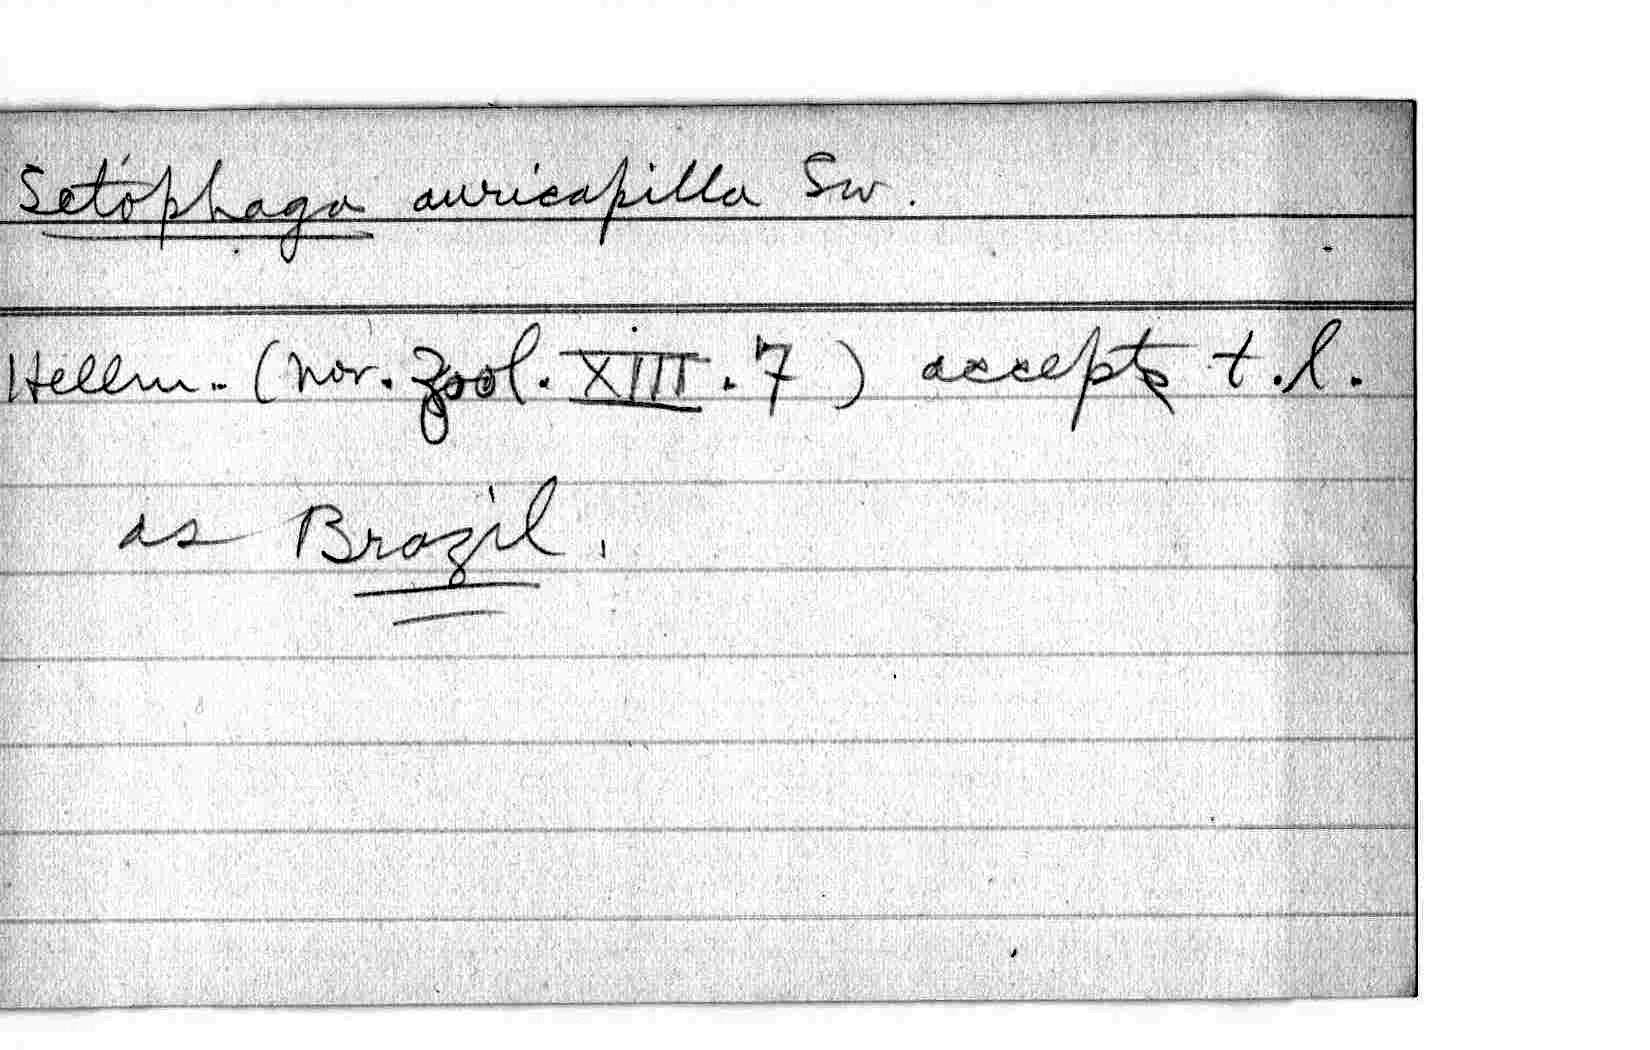 Setophaga auricapilla Sw.
Hellm. (Nov. Zool. XIII. 7) accepts t.l.
as Brazil.